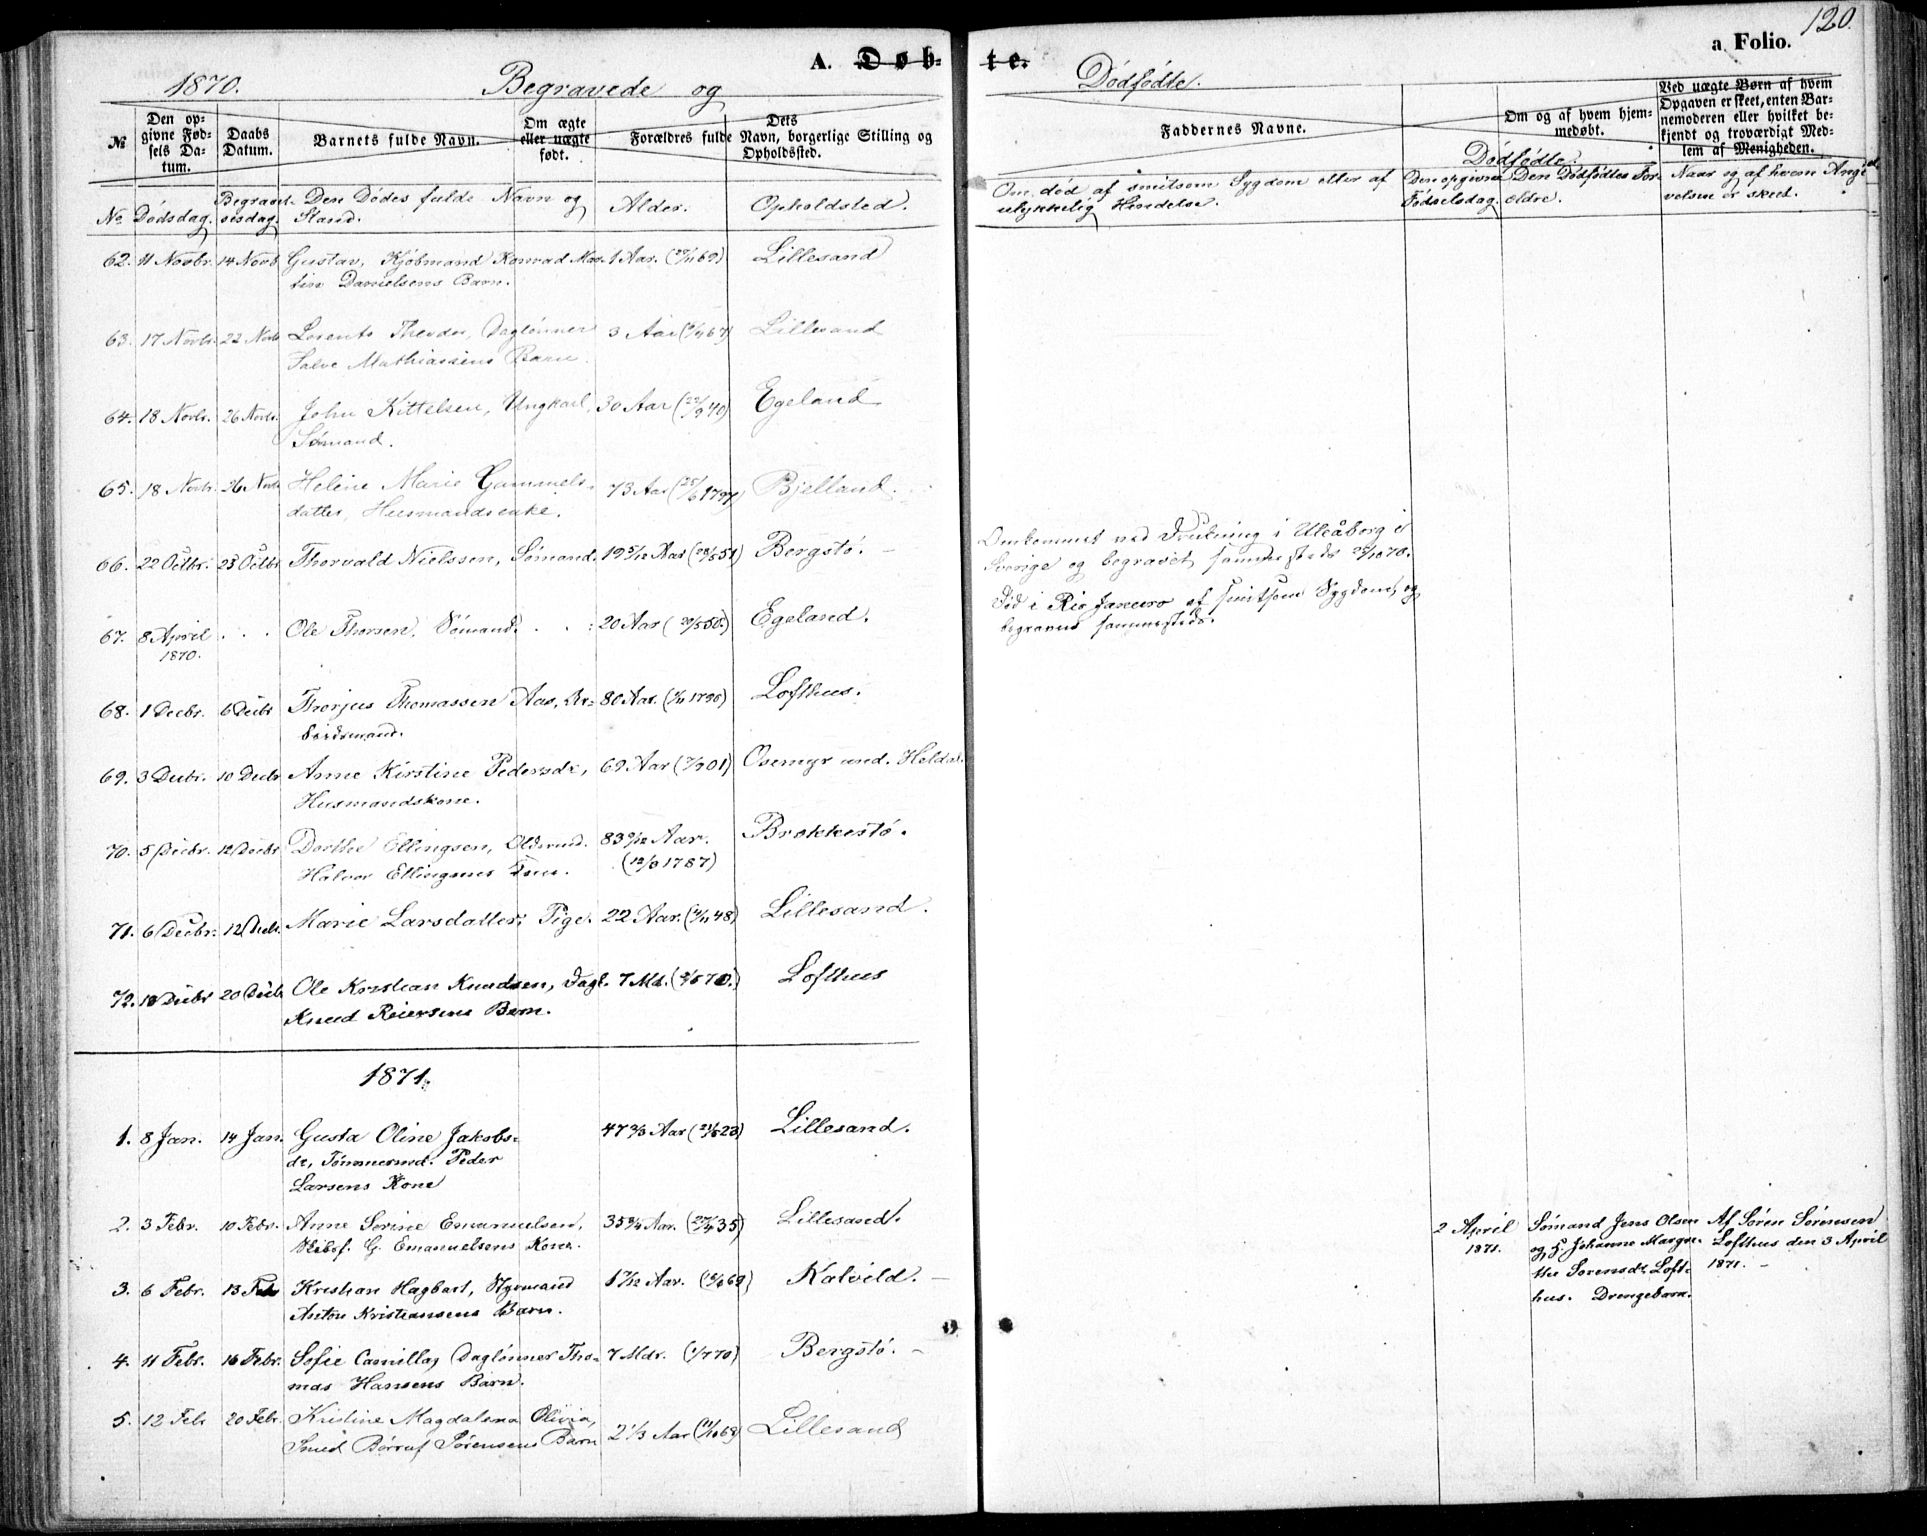 120.
A. Døbte.
a. Folio.
1870. Begravede og Dødfødte.
№
Den opgivne Fødsels Datum.
Daabs Datum.
Barnets fulde Navn.
Om ægte eller uægte født.
Forældres fulde Navn, borgerlige Stilling og Opholdsted.
Dets
Faddernes Navne.
Om og af hvem hjemmedøbt.
Ved uægte Børn af hvem Opgaven er skeet, enten Barnemoderen eller hvilket bekjendt og troværdigt Medlem af Menigheden.
Dødfødte.
№ Dødsdag. Begravelsesdag Den Dødes fulde Navn og Stand. Alder. Opholdsted.
Om død af smitsom Sygdom eller af ulykkelig Hændelse.
Den opgivne Fødselsdag. Den Dødfødtes Forældre. Naar og af hvem Angivelsen er skeet.
62. 11 Novbr. 14 Novb Gustav, Kjøbmand Konrad Mar- 1 Aar. Lillesand
tin Danielsens Barn.
63. 17 Novbr. 22 Novb Lorents Theodor, Dagtønner 3 Aar Lillesand
Salve Mathiassens Barn.
64. 18 Novbr. 26 Novbr. John Kittelsen, Ungkarl, 30 Aar Egeland
Sømand.
65. 18 Novbr. 26 Novb Helene Marie Gammels- 73 Aar Bjelland.
datter, Husmandsenke.
66. 22 Octbr. 23 Octbr Thorvald Nielssen, Sømand. 19 5/12 Aar (28/5 51) Bergstø.
Omkommet ved Drukning i Uleåborg i
Sverige og begravet sammesteds 23/10 70.
67. 8 April Ole Thorsen, Sømand. 20 Aar Egeland.
1870.
Død i Rio Janeiro af smitsom Sygdom, og
begravet sammesteds.
68. 1 Decbr. 6 Decbr Thorjus Thomassen Aas, 80 Aar. Lofthus.
69. 3 Decbr. 10 Decbr Anne Kirstine Pedersdr, 69 Aar Osemyr und. Heldal
Husmandskone.
70. 5 Decbr. 12 Decbr Dorthe Ellingsen, 83 9/12 Aar. Brækkestø.
Halvor Ellingsens (1787)
71. 6 Decbr. 12 Decbr. Marie Larsdatter, Pige. 22 Aar. Lillesand.
72. 18 Decbr 20 Decbr Ole Kristian Knudsen, Dagl. 7 Md. Lofthus
Knud Reiersens Barn.
1871.
1. 8 Jan. 14 Jan. Gusta Oline Jakobs- 47 2/3 Aar Lillesand.
dr, Tømmermd. Peder
Larsens Kone
2. 3 Febr. 10 Febr. Anne Serine Emanuelsen, 35 3/4 Aar. (27/4 35) Lillesand.
Skibsf. G. Emanuelsens Kone.
2 April Sømand Jens Olsen Af Søren Sørensen
1871. og H. Johanne Margre- Lofthus den 3 April
the Sorensdr. Loft- 1871.
hus. Drengebarn.
3. 6 Febr. 13 Feb Kristian Hagbart, Styrmand 1 7/12 Aar. Kalvild.
Anton Kristiansens Barn.
4. 11 Febr. 16 Febr. Sofie Camilla, Dagtønner Tho- 7 Mdr. (1/7 70) Bergstø.
mas Hansens Barn.
5. 12 Feb 20 Febr. Kristine Magdalena Olivia, 2 1/3 Aar Lillesand
Smed Sørensens Barn